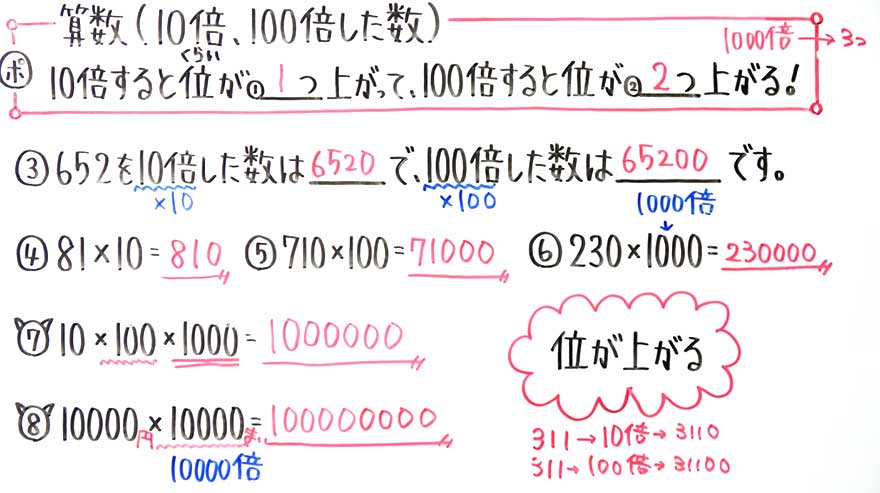 算数(10倍、100倍した数)
1000倍→3つ
くらい
ポ 10倍すると位が①1つ上がって、100倍すると位が②2つ上がる!
③652を10倍した数は6520で、100倍した数は65200です。
×10 ×100 1000倍
④81×10=810 ⑤710×100=71000 ⑥230×1000=230000
⑦10×100×1000=1000000
位が上がる
⑧10000円×10000ま。=100000000
10000倍
311→10倍→3110
311→100倍→31100